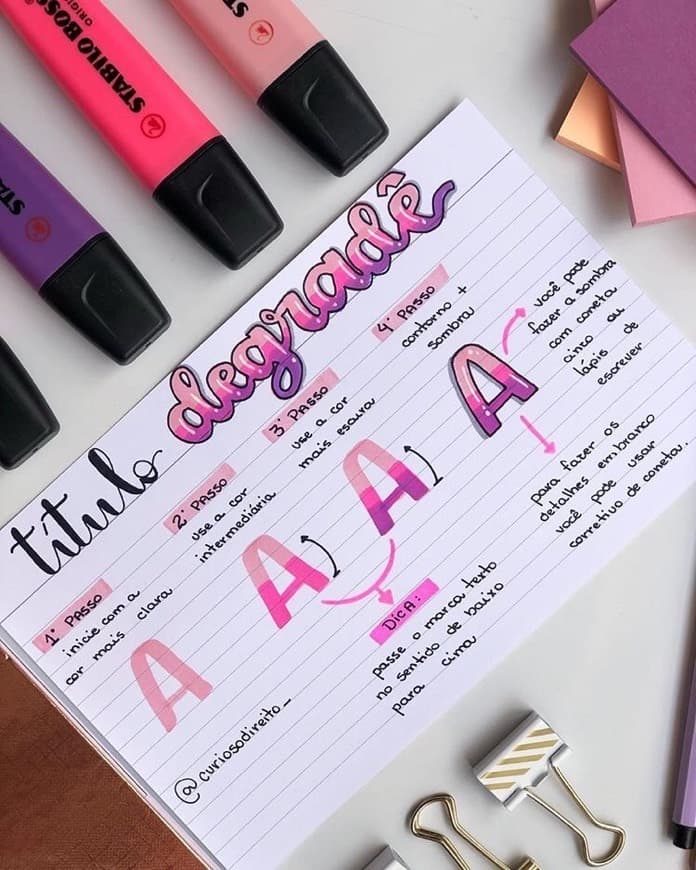 STABILO BOSS
ORIGI
STA
título degradê
1º PASSO
inicie com a
cor mais clara
2º PASSO
use a cor
intermediária
3º PASSO
use a cor
mais escura
4º PASSO
contorno +
sombra
você pode
fazer a sombra
com caneta
cinza ou
lápis de
escrever
para fazer os
detalhes em branco
você pode usar
corretivo de caneta.
DICA:
passe o marca texto
no sentido de baixo
para cima
@curiosodireito_